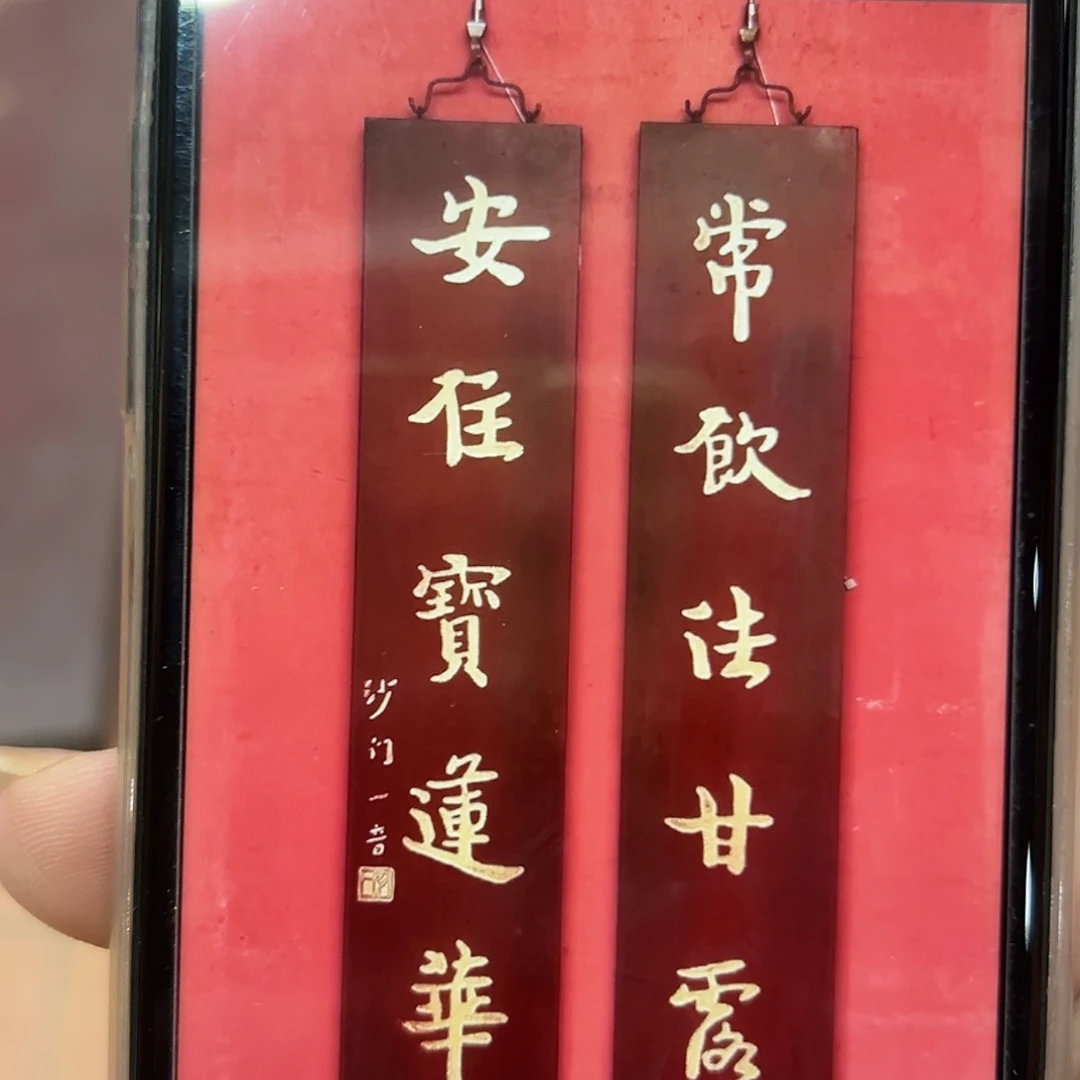 常飲法甘露
安住寶蓮華
沙门一音